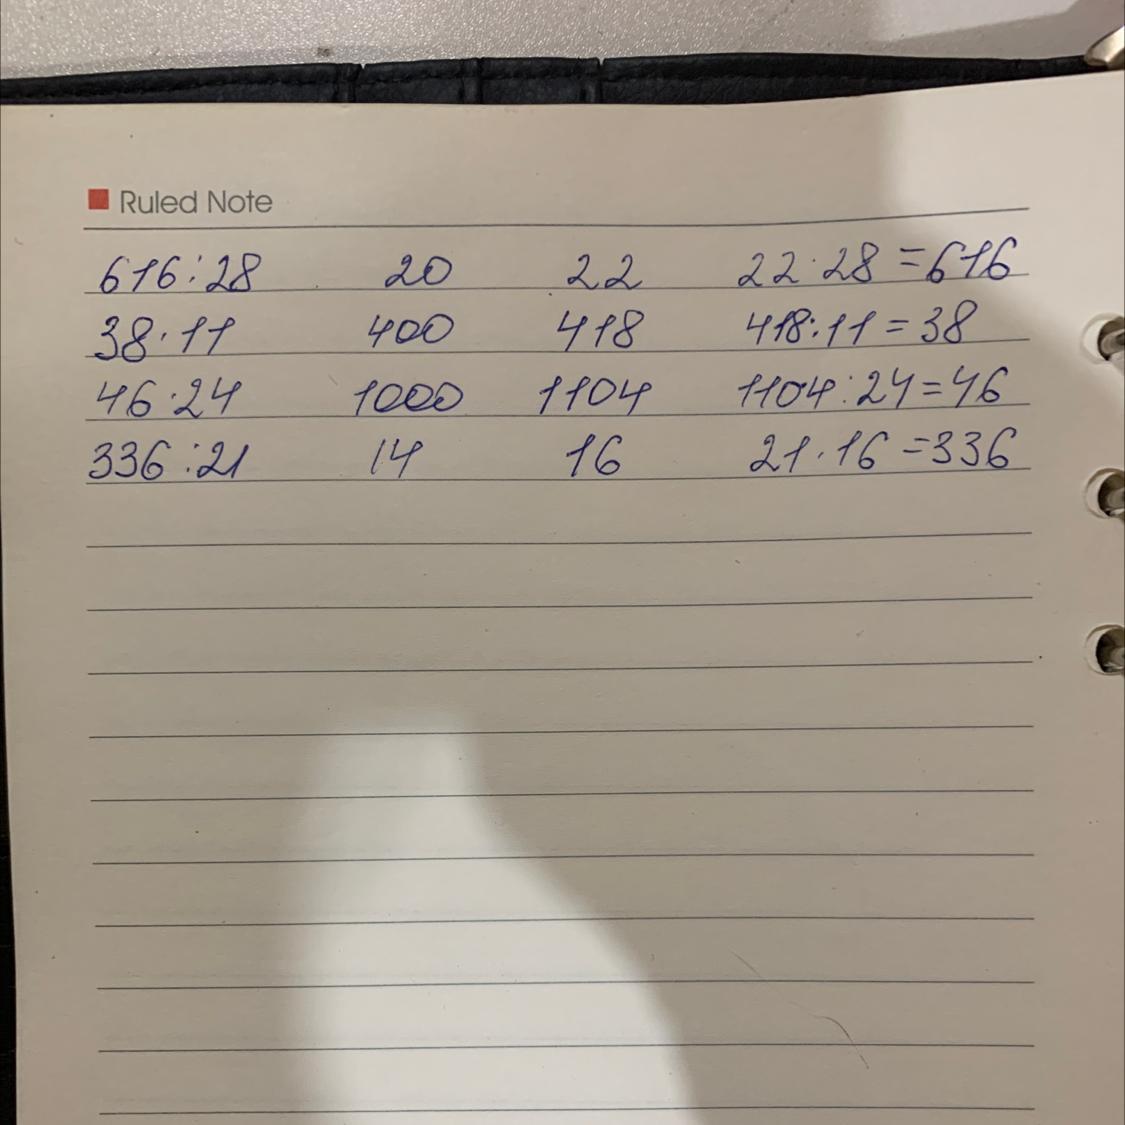 Ruled Note
616:28 20 22 22·28=616
38·11 400 418 418:11=38
46·24 1000 1104 1104:24=46
336:21 14 16 21·16=336